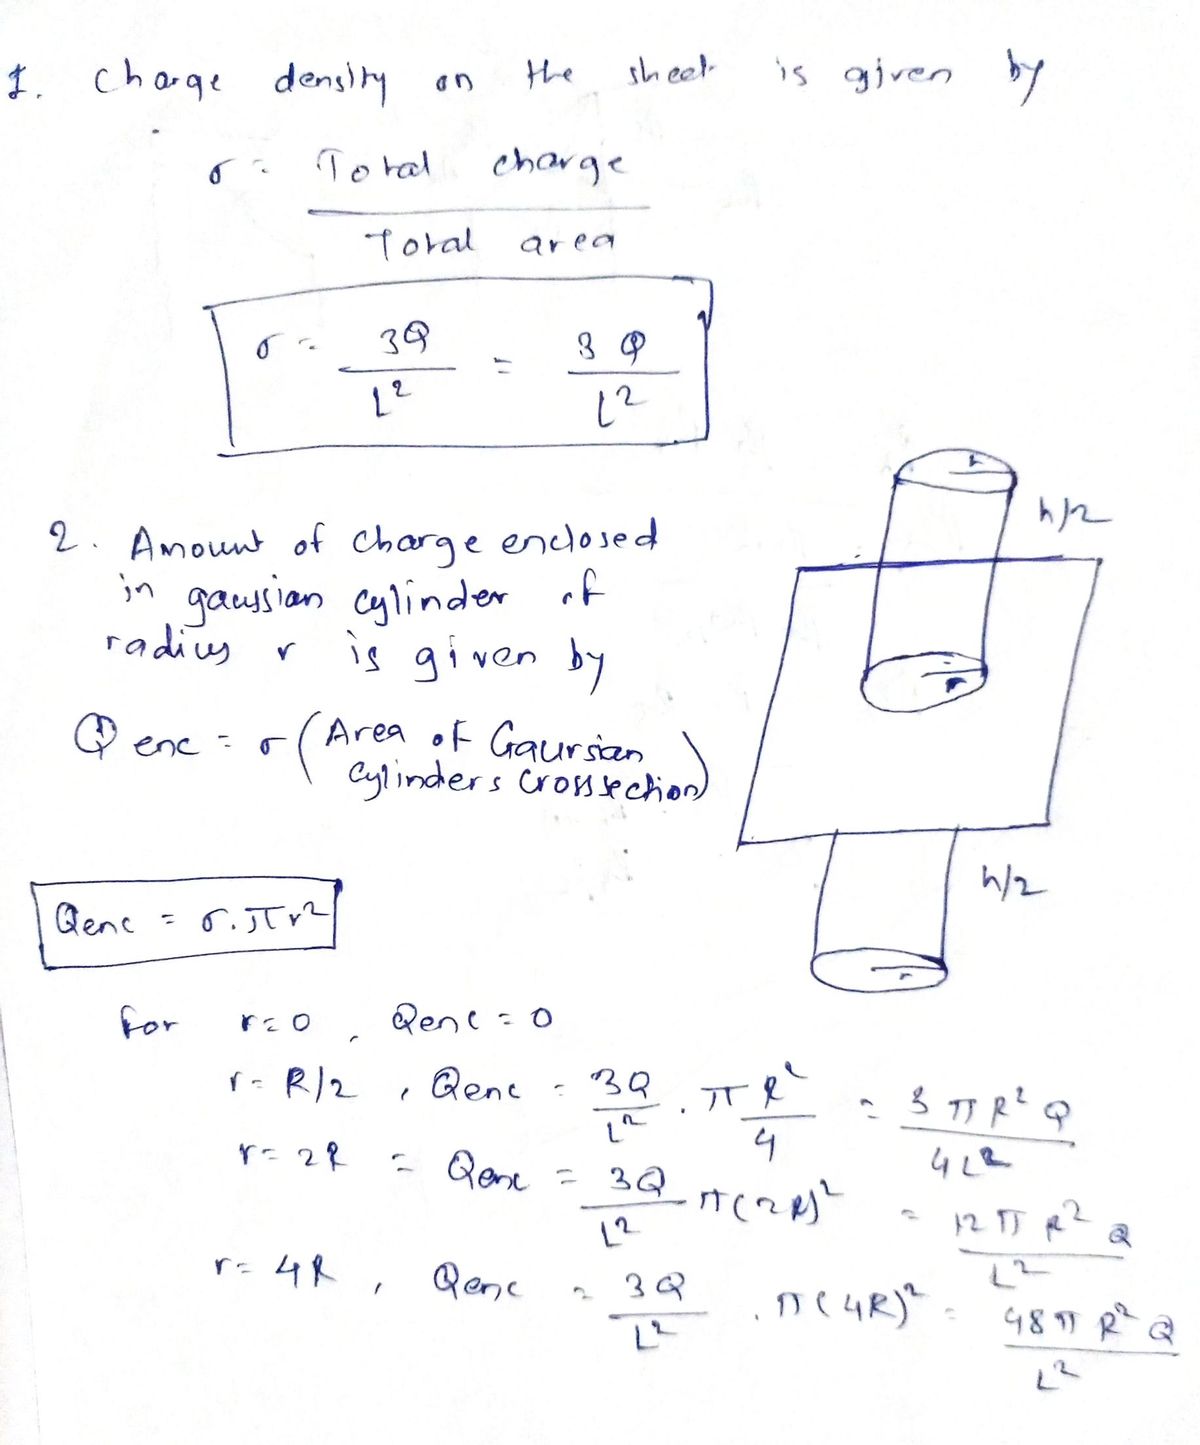 1. Charge density on the sheet is given by
σ = Total charge
Total area
σ = 3Q / L² = 3Q / L²
2. Amount of charge enclosed
in gaussian cylinder of
radius r is given by
Q enc = σ (Area of Gaursian
cylinders crosssection)
h/2
r
r
h/2
r
Qenc = σ.πr²
for r=0, Qenc = 0
r = R/2, Qenc = 3Q / L² . π R² / 4 = 3πR²Q / 4L²
r = 2R = Qenc = 3Q / L² π(2R)² = 12πR²Q / L²
r = 4R, Qenc = 3Q / L² . π(4R)² = 48πR²Q / L²